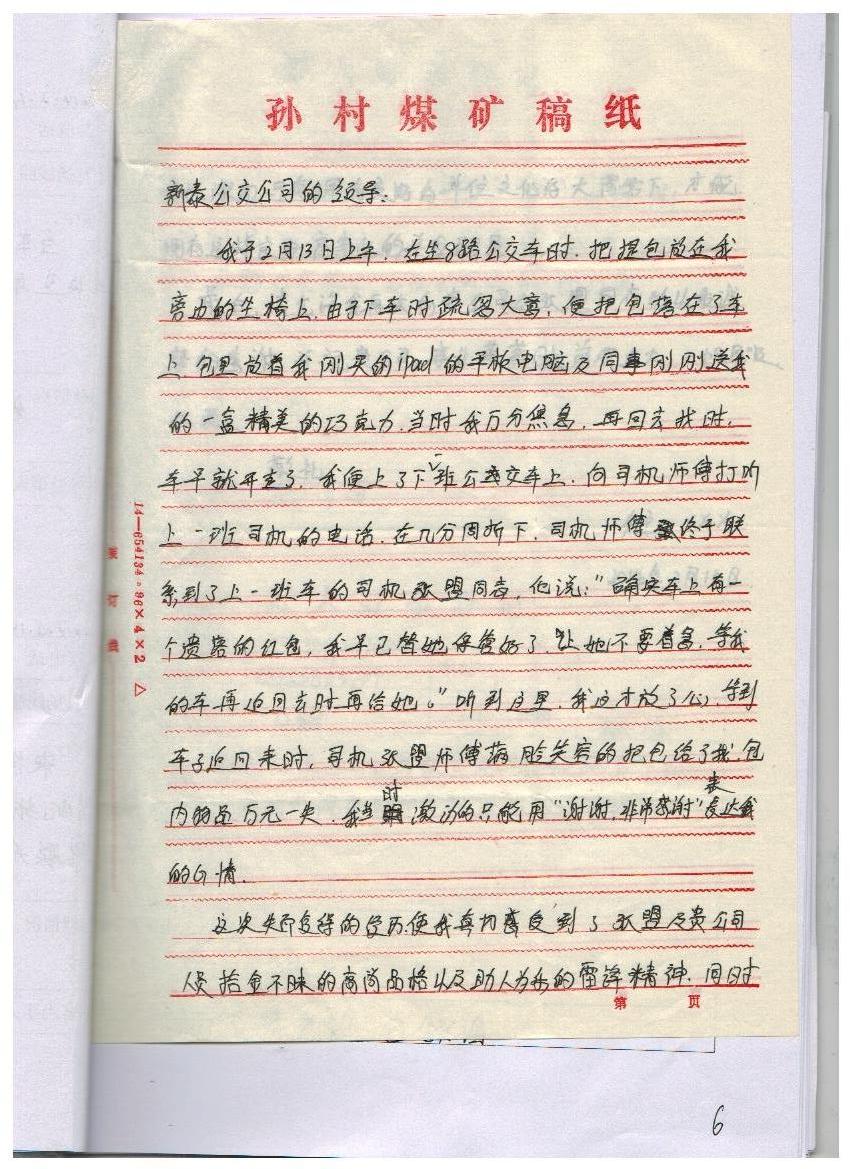 孙村煤矿稿纸
新泰公交公司的领导:
我于2月13日上午,在坐8路公交车时,把提包放在我
旁边的坐椅上,由于下车时疏忽大意,便把包落在了车
上,包里放着我刚买的ipad的平板电脑及同事刚刚送我
的一盒精美的巧克力,当时我万分焦急,再回去找时,
车早就开走了,我便上了下一班公交车上,向司机师傅打听
上一班司机的电话,在几分周折下,司机师傅终于联
系到了上一班车的司机张盟同志,他说:"确实车上有一
个遗落的红包,我早已替她保管好了,让她不要着急,等我
的车再返回去时再给她。"听到这里,我这才放了心,等到
车子返回来时,司机张盟师傅满脸笑容的把包给了我,包
内物品万无一失,我当时激动的只能用"谢谢,非常感谢"表达我
的心情.
这次失而复得的经历,使我真切感受到了张盟及贵公司
人员拾金不昧的高尚品格以及助人为乐的雷锋精神,同时
第 页
装订线
14—654134·96×4×2 △
6